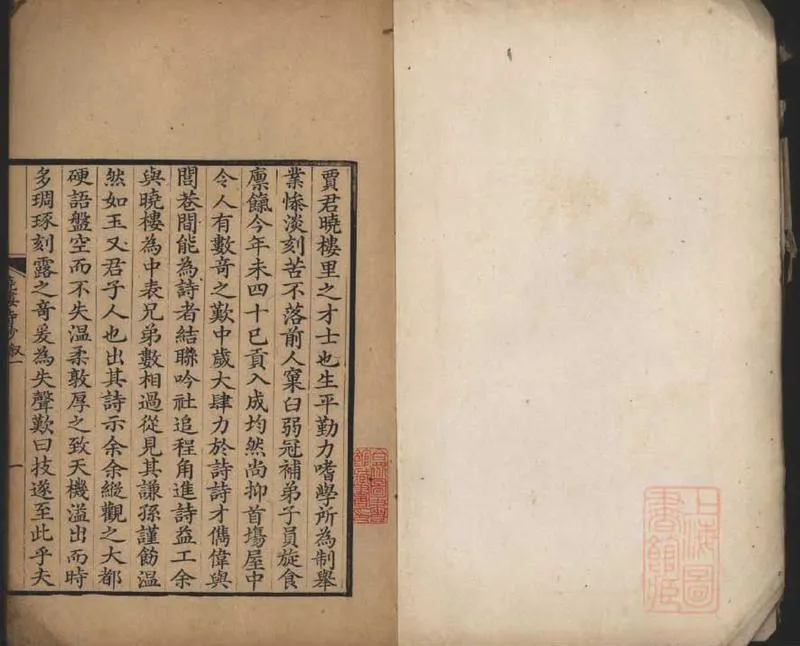 賈君曉樓里之才士也生平勤力嗜學所為制舉
業慘淡刻苦不落前人窠臼弱冠補弟子員旋食
廪餼今年未四十已貢入成均然尚抑首場屋中
令人有數竒之歎中歲大肆力於詩詩才儁偉與
閭巷間能為詩者結聯吟社追程角進詩益工余
與曉樓為中表兄弟數相過從見其謙孫謹飭温
然如玉又君子人也出其詩示余余縱觀之大都
硬語盤空而不失温柔敦厚之致天機溢出而時
多琱琢刻露之竒爰為失聲歎曰技遂至此乎夫
一
上海圖
書館藏